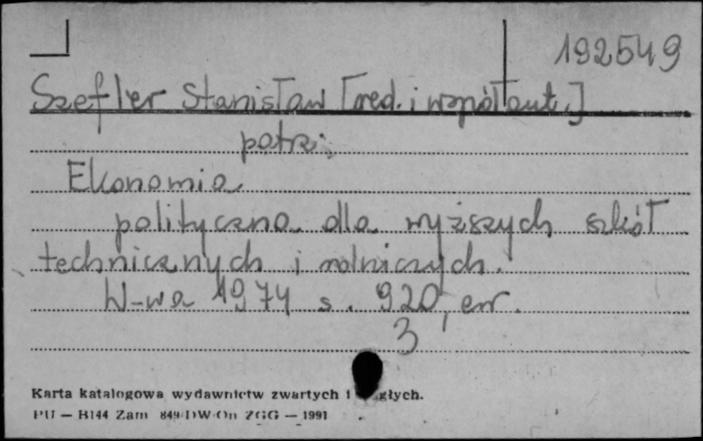 192549
Szefler Stanisław [red. i współaut.]
patrz:
Ekonomia
polityczna dla wyższych szkół
technicznych i rolniczych.
W-wa 1974 s. 920, err.
3
Karta katalogowa wydawnictw zwartych i głych.
PU — H144 Zam 849/DW/On ZGG — 1991